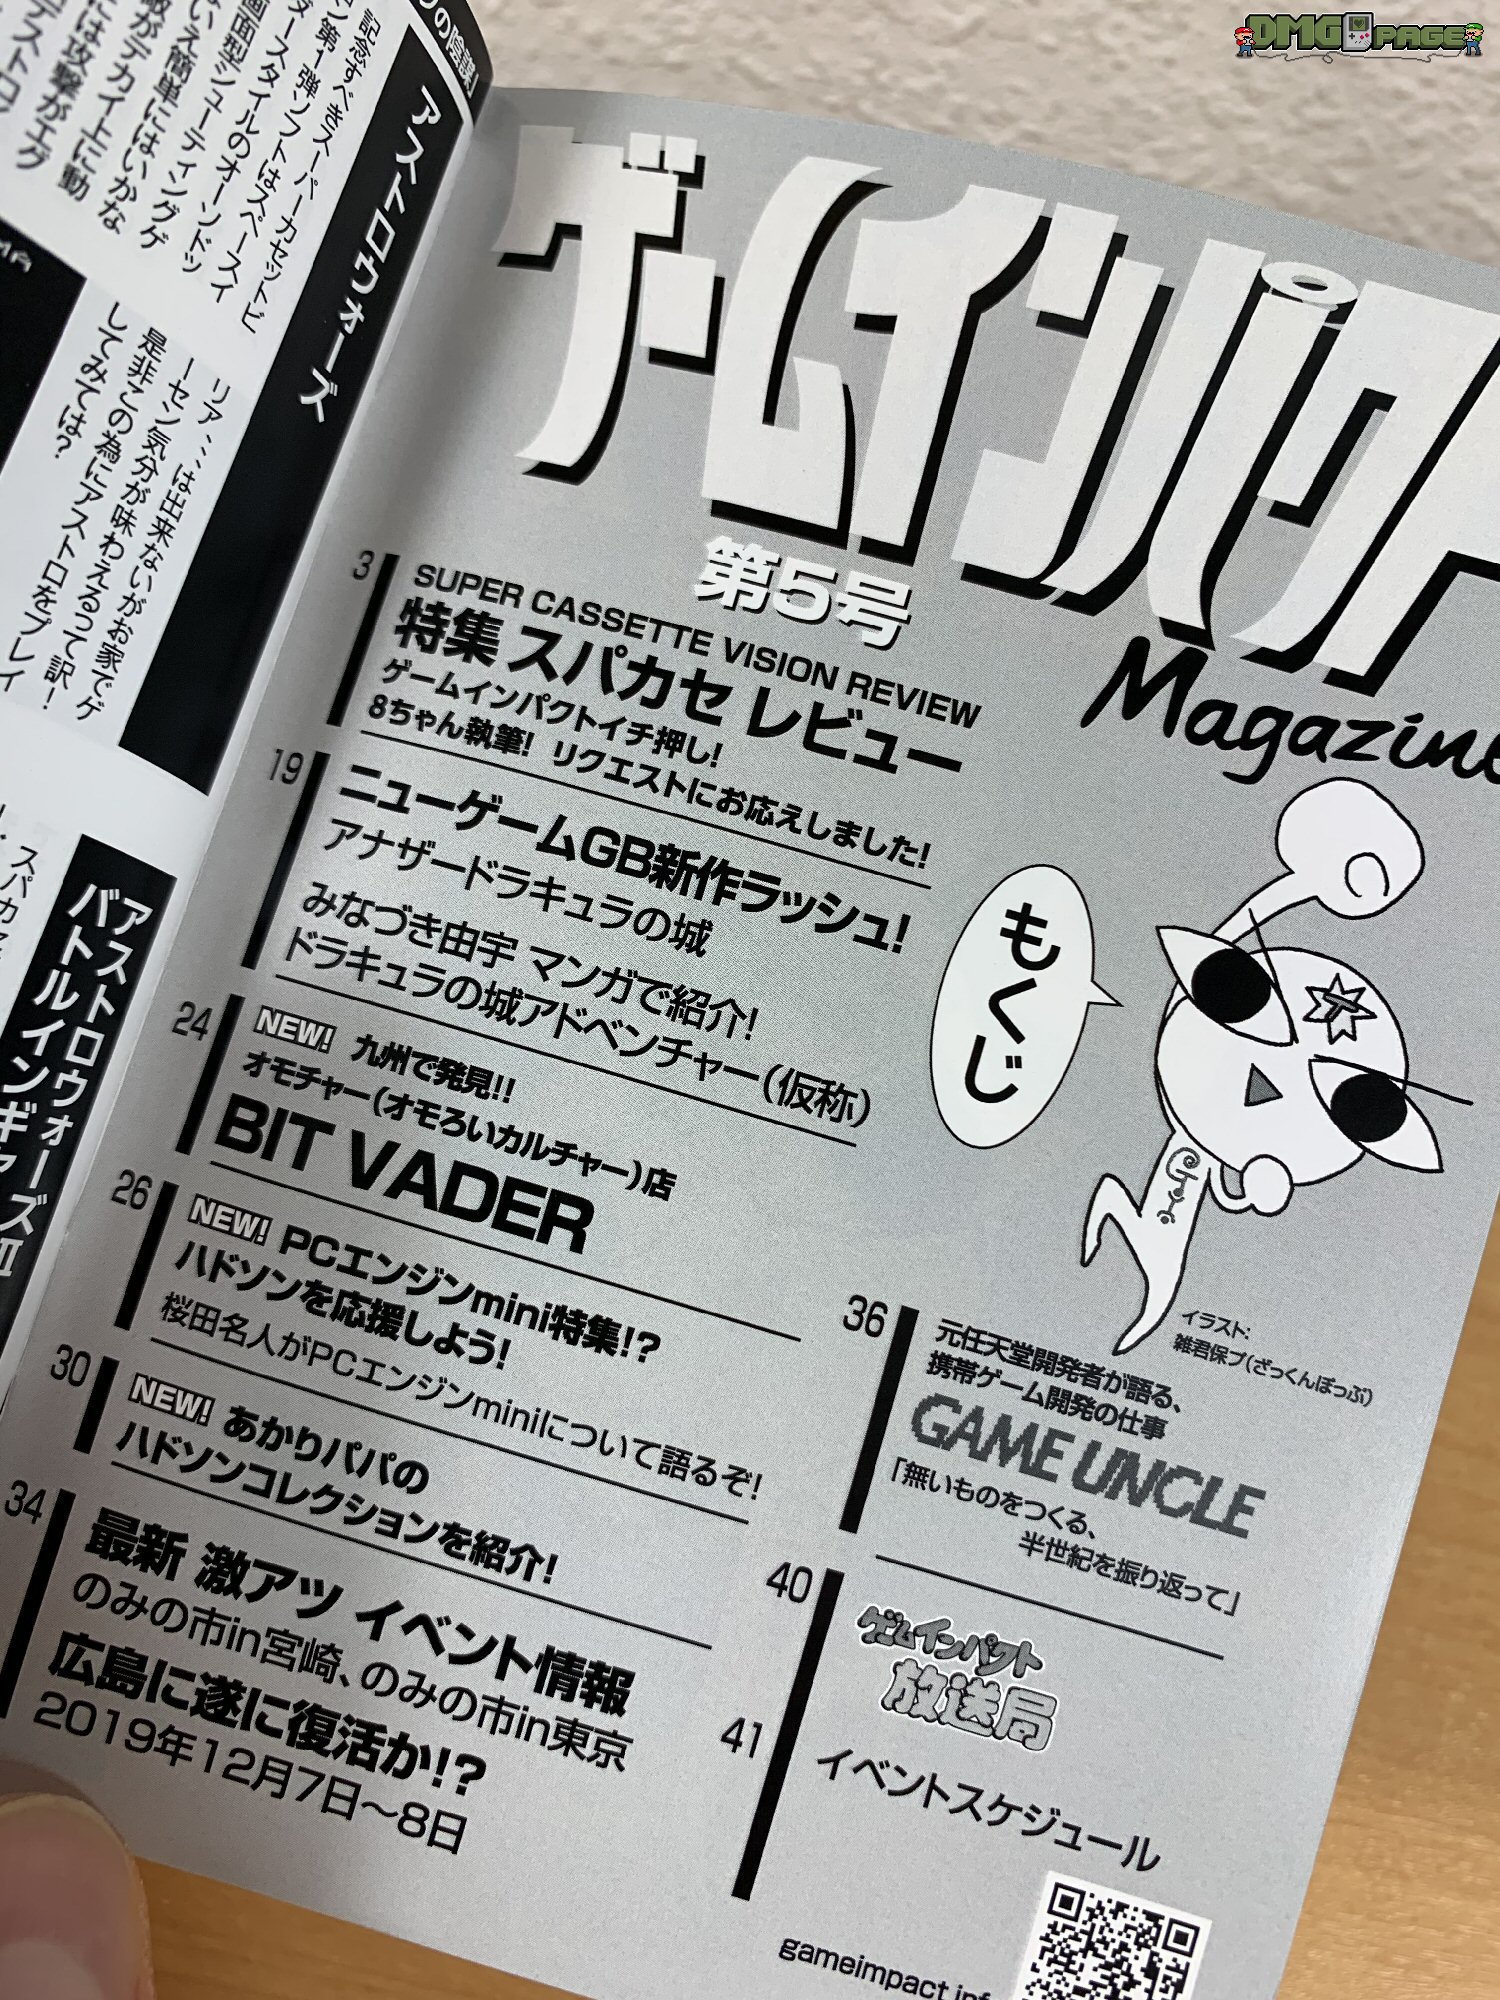 DMG PAGE
の陰謀」
アストロウォーズ
記念すべきスーパーカセットビ
ン第1弾ソフトはスペースイ
ダースタイルのオーソドッ
画面型シューティングゲ
いえ簡単にはいかな
敵がデカイ上に動
には攻撃がエグ
リア、、、は出来ないがお家でゲ
ーセン気分が味わえるって訳!
是非この為にアストロをプレイ
してみては?
アストロウォーズII
バトルインギャ
ゲームインパクト
Magazine
第5号
もくじ
3
SUPER CASSETTE VISION REVIEW
特集 スパカセ レビュー
ゲームインパクトイチ押し!
8ちゃん執筆! リクエストにお応えしました!
19
ニューゲームGB新作ラッシュ!
アナザードラキュラの城
みなづき由宇 マンガで紹介!
ドラキュラの城アドベンチャー(仮称)
24
NEW! 九州で発見!!
オモチャー(オモろいカルチャー)店
BIT VADER
26
NEW! PCエンジンmini特集!?
ハドソンを応援しよう!
桜田名人がPCエンジンminiについて語るぞ!
30
NEW! あかりパパの
ハドソンコレクションを紹介!
34
最新 激アツ イベント情報
のみの市in宮崎、のみの市in東京
広島に遂に復活か!?
2019年12月7日〜8日
イラスト:
雑君保プ(ざっくんぽっぷ)
36
元任天堂開発者が語る、
携帯ゲーム開発の仕事
GAME UNCLE
「無いものをつくる、
半世紀を振り返って」
40
ゲームインパクト
放送局
41
イベントスケジュール
gameimpact.inf